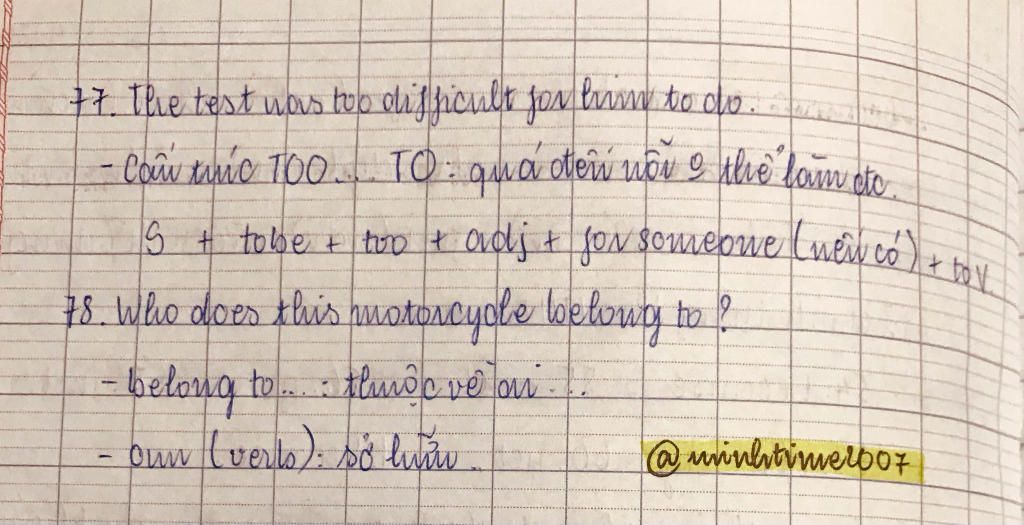 77. The test was too difficult for him to do.
- Cấu trúc TOO... TO: quá đến nỗi o thể làm đc.
S + tobe + too + adj + for someone (nếu có) + to V
78. Who does this motorcycle belong to?
- belong to...: thuộc về ai...
- own (verb): sở hữu.
@minhtime2007